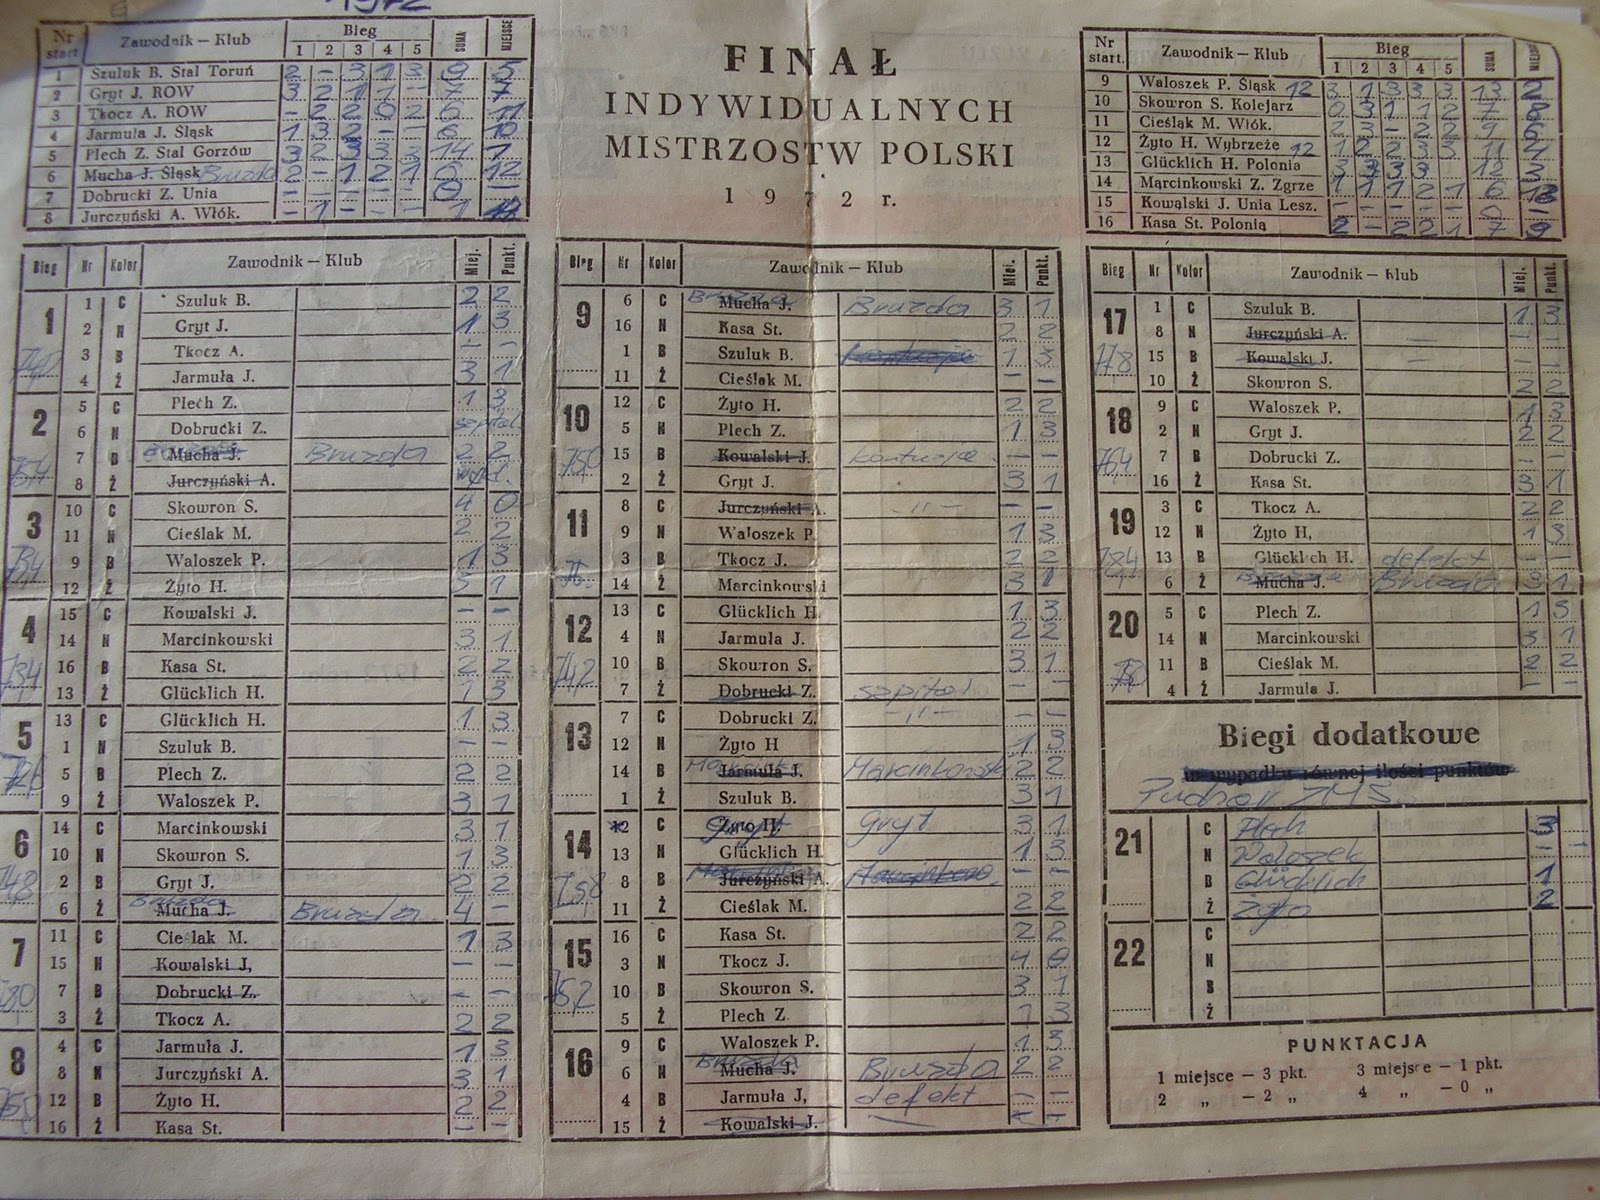 1972
FINAŁ
INDYWIDUALNYCH
MISTRZOSTW POLSKI
1972 r.
Nr start Zawodnik — Klub Bieg 1 2 3 4 5 SUMA MIEJSCE
1 Szuluk B. Stal Toruń 2 - 3 1 3 9 5
2 Gryt J. ROW 3 2 1 1 - 7 7
3 Tkocz A. ROW - 2 2 0 2 6 11
4 Jarmuła J. Śląsk 1 3 2 - - 6 10
5 Plech Z. Stal Gorzów 3 2 3 3 3 14 1
6 Mucha J. Śląsk Bruzda 2 - 1 2 1 6 12
7 Dobrucki Z. Unia 0 -
8 Jurczyński A. Włók. - 1 - - - 1
Nr start. Zawodnik — Klub Bieg 1 2 3 4 5 SUMA
9 Waloszek P. Śląsk 12 3 1 3 3 3 13 2
10 Skowron S. Kolejarz 0 3 1 1 2 7 8
11 Cieślak M. Włók. 2 3 - 2 2 9 6
12 Żyto H. Wybrzeże 12 1 2 2 3 3 11 4
13 Glücklich H. Polonia 3 3 3 3 12 3
14 Marcinkowski Z. Zgrze 1 1 1 2 1 6
15 Kowalski J. Unia Lesz. - - - - - 0 -
16 Kasa St. Polonia 2 - 2 2 1 7 9
Bieg Nr Kolor Zawodnik — Klub Miej. Punkt.
1
1 C Szuluk B. 2 2
2 N Gryt J. 1 3
3 B Tkocz A. - -
4 Ż Jarmuła J. 3 1
2
5 C Plech Z. 1 3
6 N Dobrucki Z. szpital
7 B Mucha J. Bruzda 2 2
8 Ż Jurczyński A.
3
10 C Skowron S. 4 0
11 N Cieślak M. 2 2
9 B Waloszek P. 1 3
12 Ż Żyto H. 3 1
4
15 C Kowalski J. - -
14 N Marcinkowski 3 1
16 B Kasa St. 2 2
13 Ż Glücklich H. 1 3
5
13 C Glücklich H. 1 3
1 N Szuluk B. - -
5 B Plech Z. 2 2
9 Ż Waloszek P. 3 1
6
14 C Marcinkowski 3 1
10 N Skowron S. 1 3
2 B Gryt J. 2 2
6 Ż Mucha J. Bruzda 4 -
7
11 C Cieślak M. 1 3
15 N Kowalski J, - -
7 B Dobrucki Z. - -
3 Ż Tkocz A. 2 2
8
4 C Jarmuła J. 1 3
8 N Jurczyński A. 3 1
12 B Żyto H. 2 2
16 Ż Kasa St. - -
Bieg Nr Kolor Zawodnik — Klub Miej. Punkt.
9
6 C Mucha J. Bruzda 3 1
16 N Kasa St. 2 2
1 B Szuluk B. 1 3
11 Ż Cieślak M. - -
10
12 C Żyto H. 2 2
5 N Plech Z. 1 3
15 B Kowalski J. kontuzja - -
2 Ż Gryt J. 3 1
11
8 C Jurczyński A. -"- - -
9 N Waloszek P 1 3
3 B Tkocz J. 2 2
14 Ż Marcinkowski 3 1
12
13 C Glücklich H. 1 3
4 N Jarmuła J. 2 2
10 B Skowron S. 3 1
7 Ż Dobrucki Z. szpital - -
13
7 C Dobrucki Z. -"- - -
12 N Żyto H 1 3
14 B Jarmuła J. Marcinkowski 2 2
1 Ż Szuluk B. 3 1
14
12 C Żyto H. Gryt 3 1
13 N Glücklich H. 1 3
8 B Jurczyński A. - -
11 Ż Cieślak M. 2 2
15
16 C Kasa St. 2 2
3 N Tkocz J. 4 0
10 B Skowron S. 3 1
5 Ż Plech Z. 1 3
16
9 C Waloszek P. 1 3
6 N Mucha J. Bruzda 2 2
4 B Jarmuła J, defekt - -
15 Ż Kowalski J. - -
Bieg Nr Kolor Zawodnik — Klub Miej. Punkt.
17
1 C Szuluk B. 1 3
8 N Jurczyński A. - -
15 B Kowalski J. - -
10 Ż Skowron S. 2 2
18
9 C Waloszek P. 1 3
2 N Gryt J. 2 2
7 B Dobrucki Z. - -
16 Ż Kasa St. 3 1
19
3 C Tkocz A. 2 2
12 N Żyto H, 1 3
13 B Glücklich H. defekt - -
6 Ż Mucha J. Bruzda 3 1
20
5 C Plech Z. 1 3
14 N Marcinkowski 3 1
11 B Cieślak M. 2 2
4 Ż Jarmuła J. - -
Biegi dodatkowe
w wypadku równej ilości punktów
Puchar
21
C Plech 3
N Waloszek -
B Glücklich 1
Ż Żyto 2
22
C
N
B
Ż
PUNKTACJA
1 miejsce — 3 pkt. 3 miejsce — 1 pkt.
2 „ — 2 „ 4 „ — 0 „